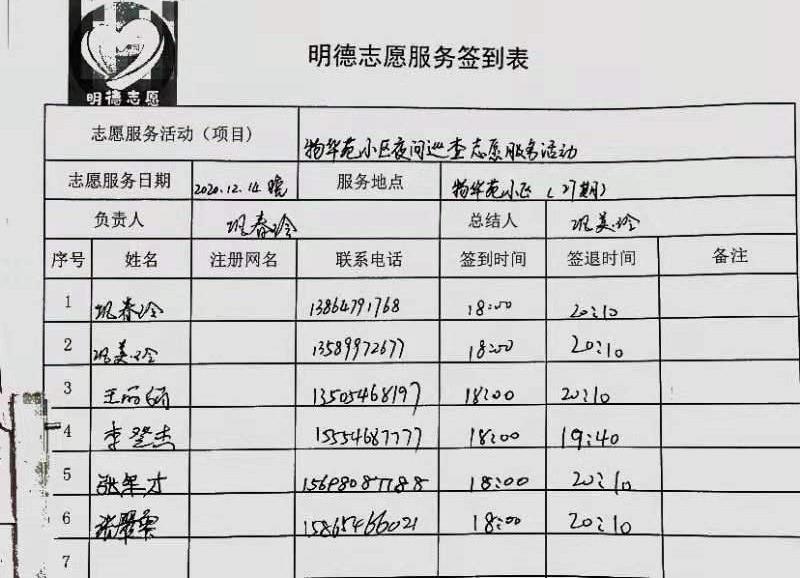 明德志愿服务签到表
明德志愿
志愿服务活动（项目） 物华苑小区夜间巡查志愿服务活动
志愿服务日期 2020.12.14 晚 服务地点 物华苑小区（27期）
负责人 春玲 总结人 美玲
序号 姓名 注册网名 联系电话 签到时间 签退时间 备注
1 春玲 13864791768 18:00 20:10
2 美玲 13589972677 18:00 20:10
3 王丽娟 13505468197 18:00 20:10
4 李登杰 15554687777 18:00 19:40
5 张军才 15698087188 18:00 20:10
6 张 15865466021 18:00 20:10
7